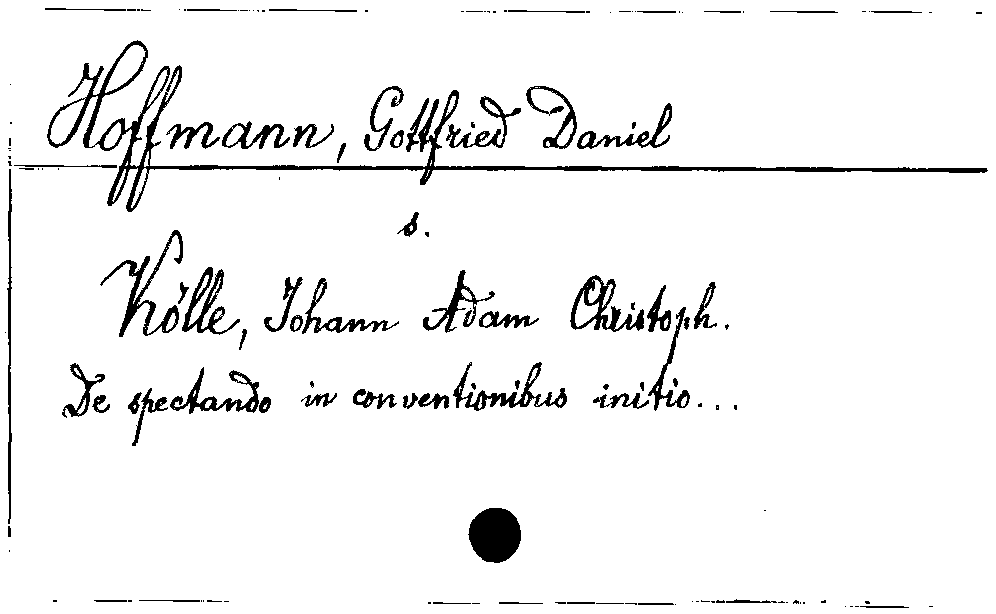 Hoffmann, Gottfried Daniel
s.
Kölle, Johann Adam Christoph.
De spectando in conventionibus initio...